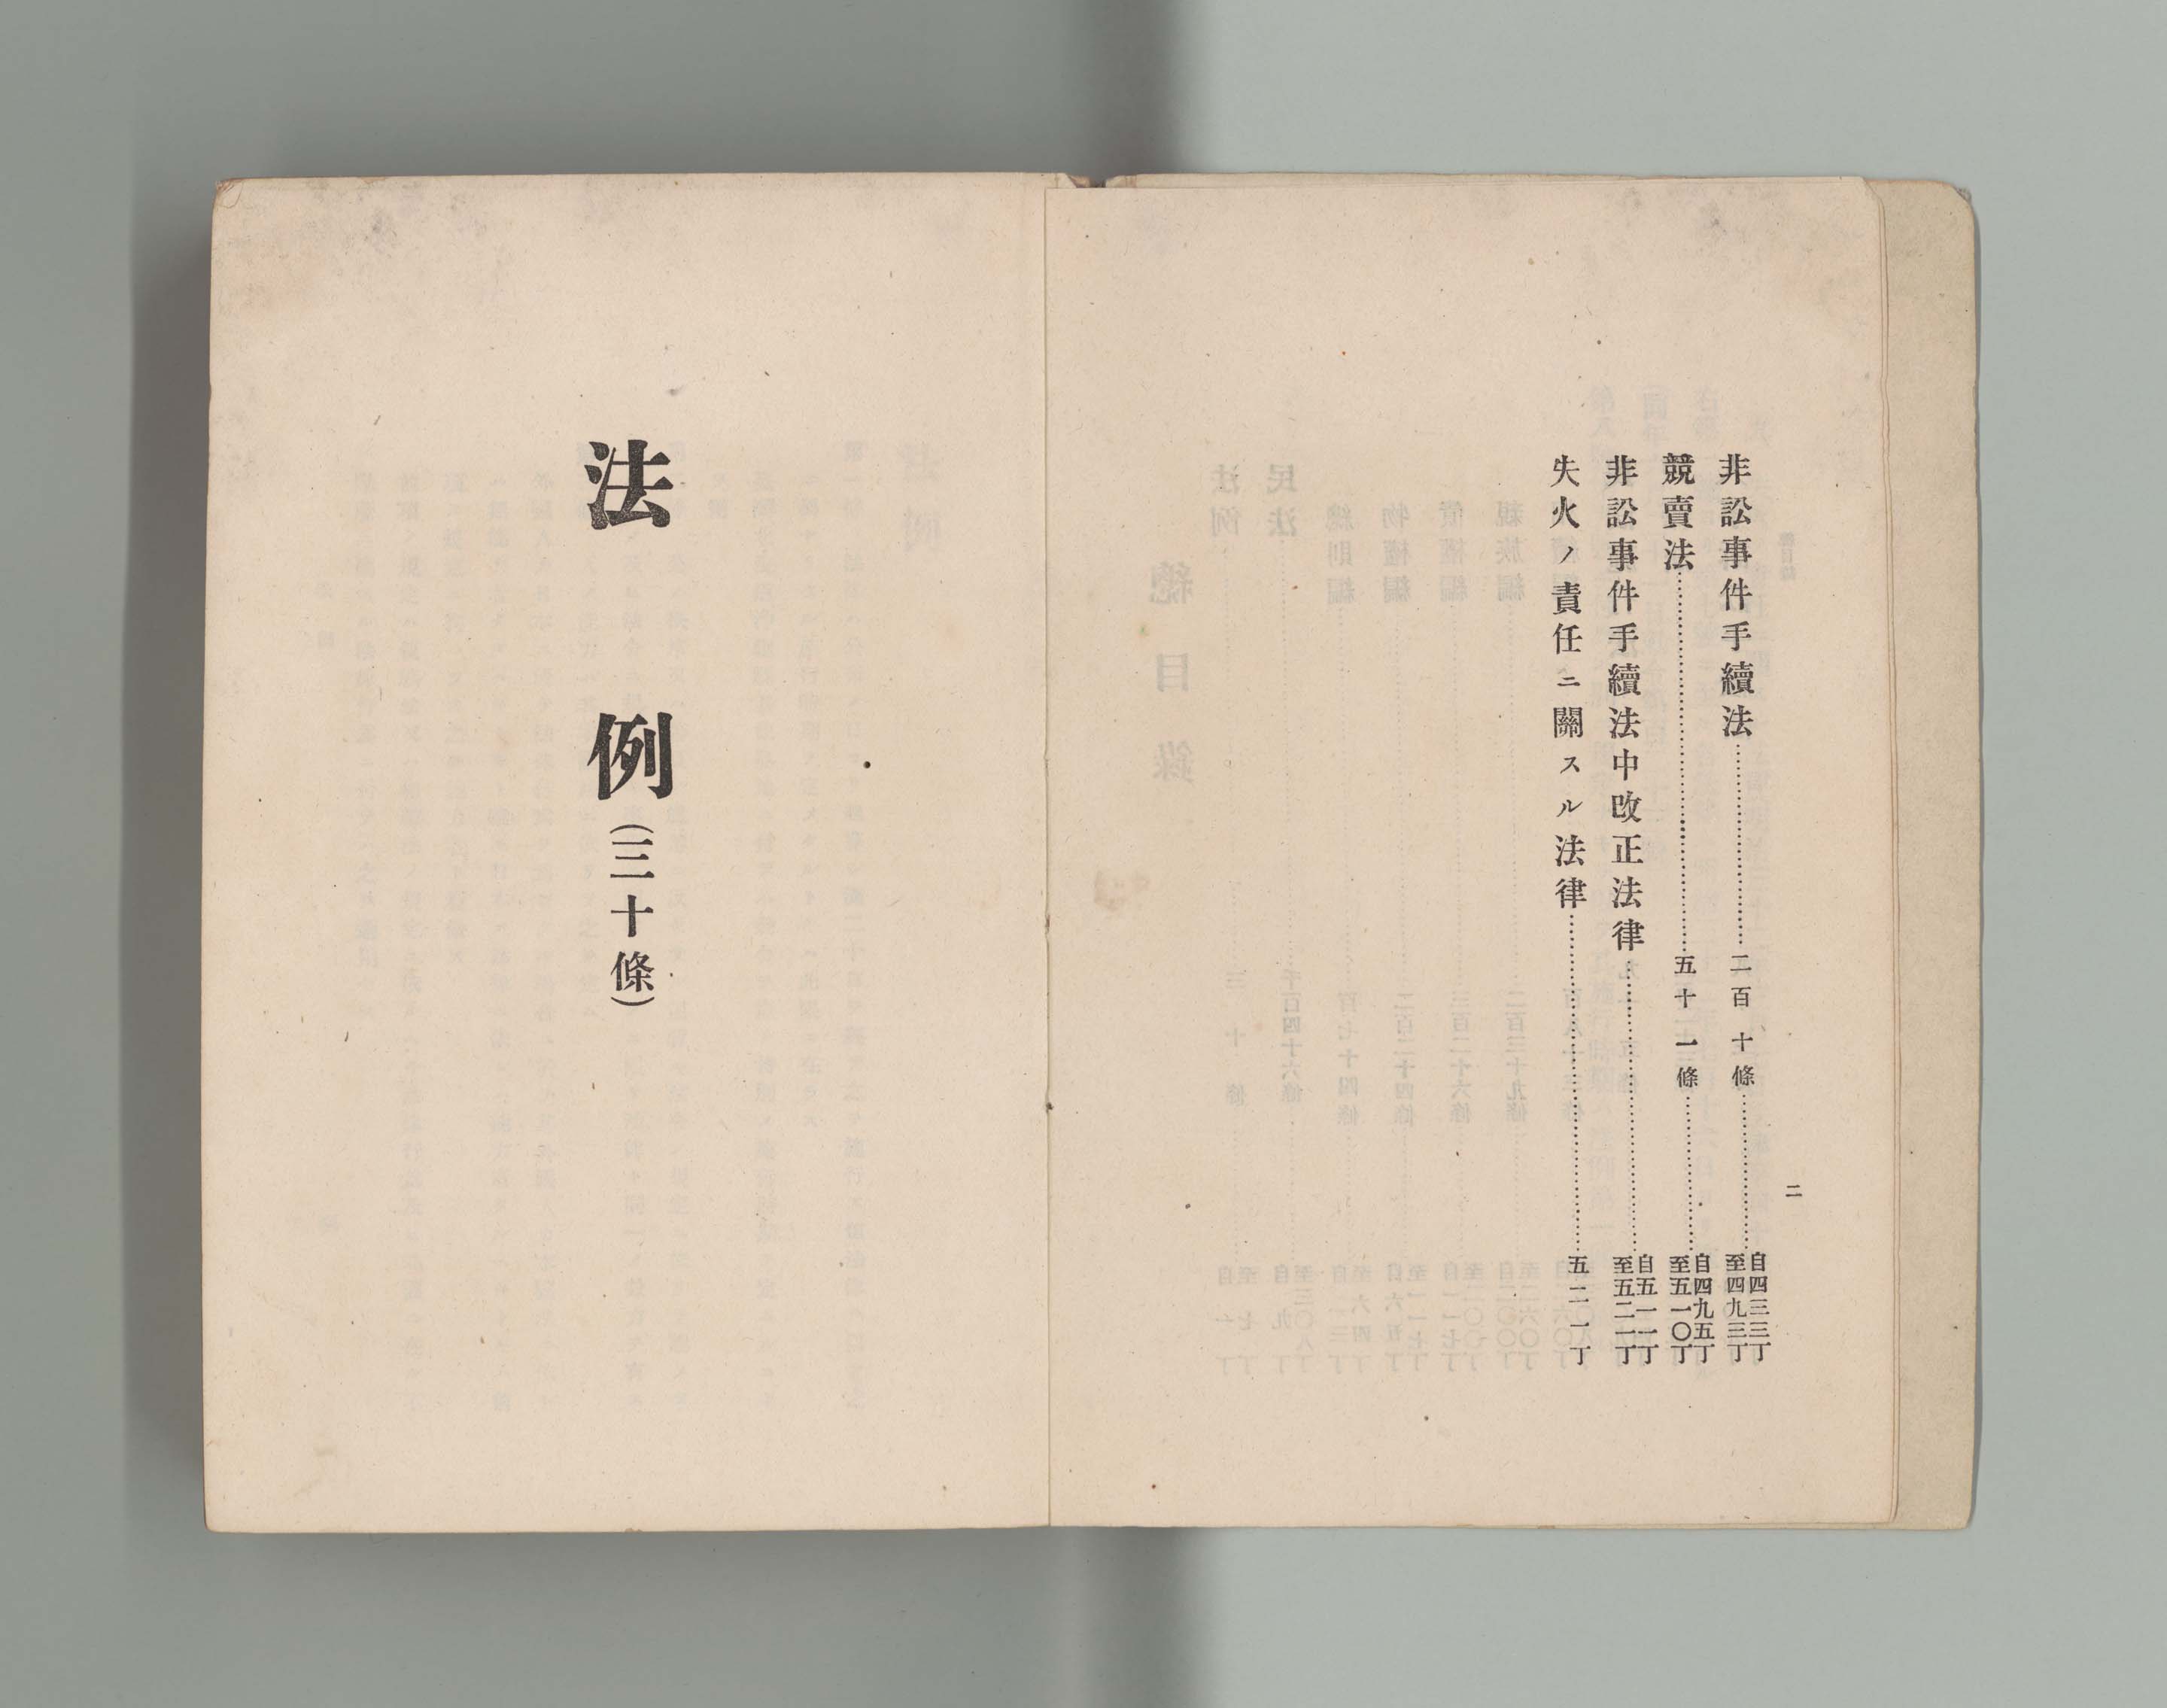 二
非訟事件手續法……二百十條……自四三三丁至四九三丁
競賣法……五十一條……自四九五丁至五一〇丁
非訟事件手續法中改正法律……自五一一丁至五二一丁
失火ノ責任ニ關スル法律……五二一丁
法例(三十條)